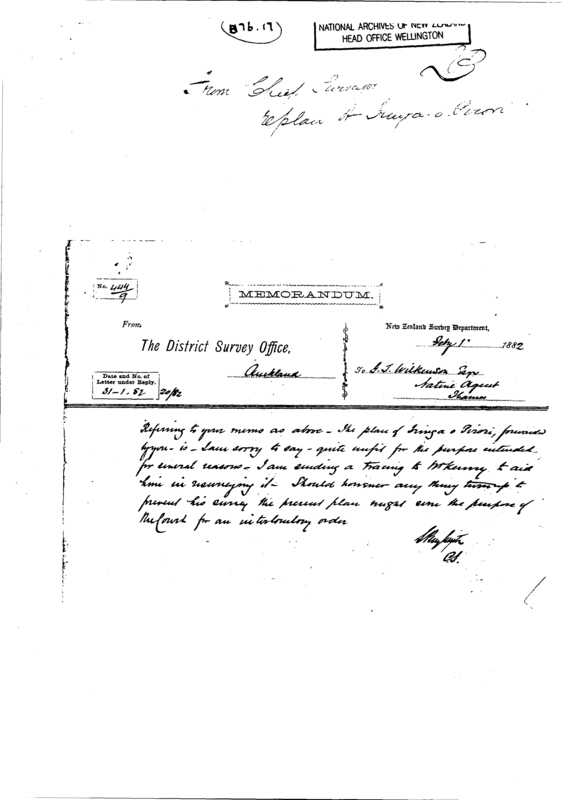 B76.17
NATIONAL ARCHIVES OF NEW ZEALAND
HEAD OFFICE WELLINGTON
From Chief Surveyor
Replan
No. 444/9
MEMORANDUM.
From,
The District Survey Office,
Auckland
New Zealand Survey Department,
Feby. 1st 1882
To G. T. Wilkinson Esqr
Native Agent
Thames
Date and No. of
Letter under Reply.
31-1.82 20/82
Referring to your memo as above - The plan of Iringa o Pirori, forwarded
by you - is - I am sorry to say - quite unfit for the purpose intended
for several reasons - I am sending a Tracing to to aid
him in resurveying it - Should however any thing turn up to
prevent his survey the present plan might serve the purpose of
the Court for an interlocutory order
C.S.